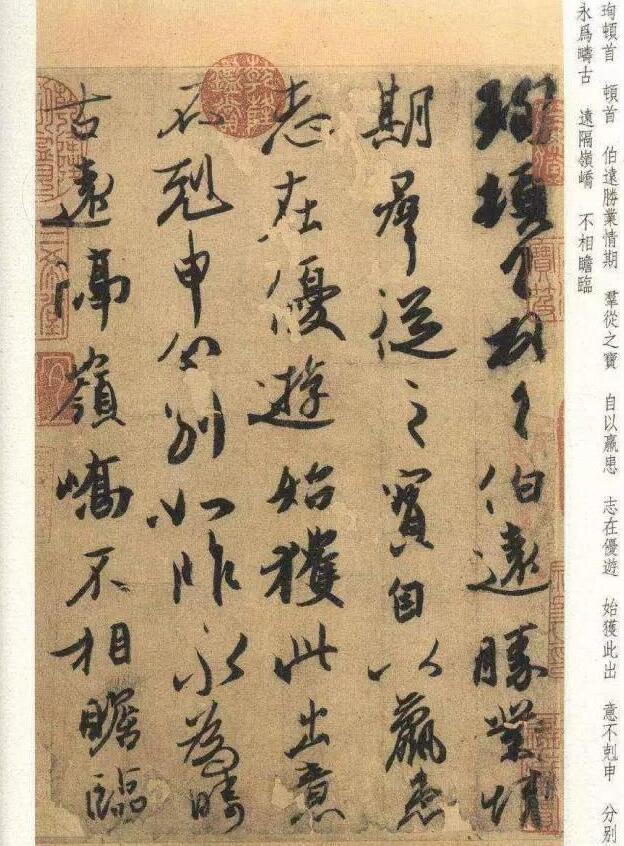 珣頓首 頓首 伯遠勝業情期 羣從之寶 自以羸患 志在優遊 始獲此出 意不剋申 分別
永爲疇古 遠隔嶺嶠 不相瞻臨
珣頓首頓首伯遠勝業情
期羣從之寶自以羸患
志在優遊始獲此出意
不剋申分別如昨永為疇
古遠隔嶺嶠不相瞻臨